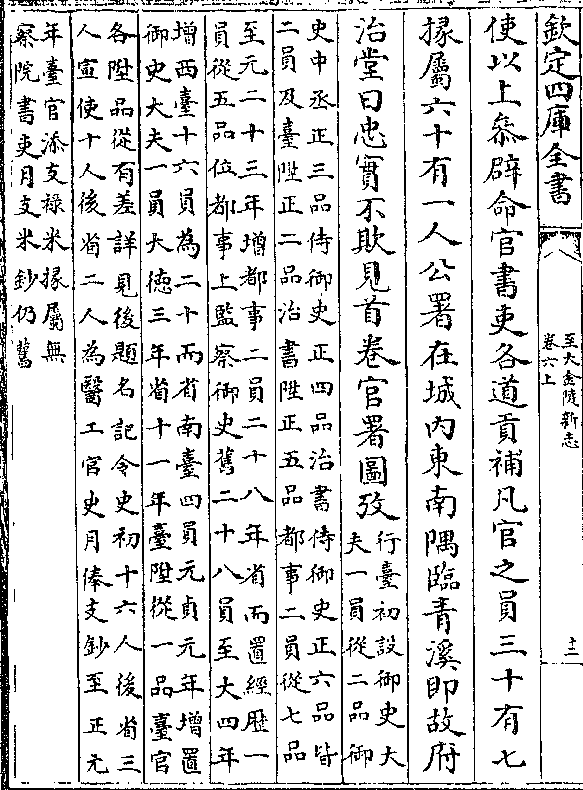 欽定四庫全書
至大金陵新志
卷六上
十二
使以上叅辟命官書吏各道貢補凡官之員三十有七
掾屬六十有一人公署在城內東南隅臨青溪即故府
治堂曰忠實不欺見首卷官署圖攷
行臺初設御史大
夫一員從二品御
史中丞正三品侍御史正四品治書侍御史正六品皆
二員及臺陞正二品治書陞正五品都事二員從七品
至元二十三年增都事二員二十八年省而置經歷一
員從五品位都事上監察御史舊二十八員至大四年
增西臺十六員為二十而省南臺四員元貞元年增置
御史大夫一員大徳三年省十一年臺陞從一品臺官
各陞品從有差詳見後題名記令史初十六人後省三
人宣使十人後省二人為醫工官史月俸支鈔至正元
年臺官添支祿米掾屬無
察院書吏月支米鈔仍舊